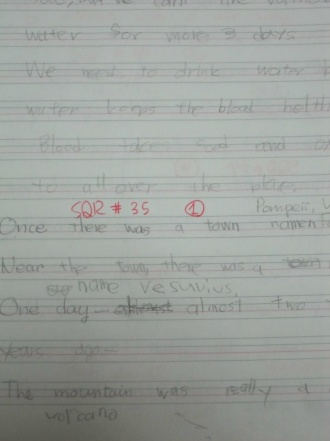 water for more 3 days
We need to drink water
water keeps the blood
Blood take and
to all over the place.
SQR # 35 ①
Pompeii,
Once there was a town
Near the town, there was a
name vesuvius,
One day — almost two
years ago —
The mountain was really a
volcano